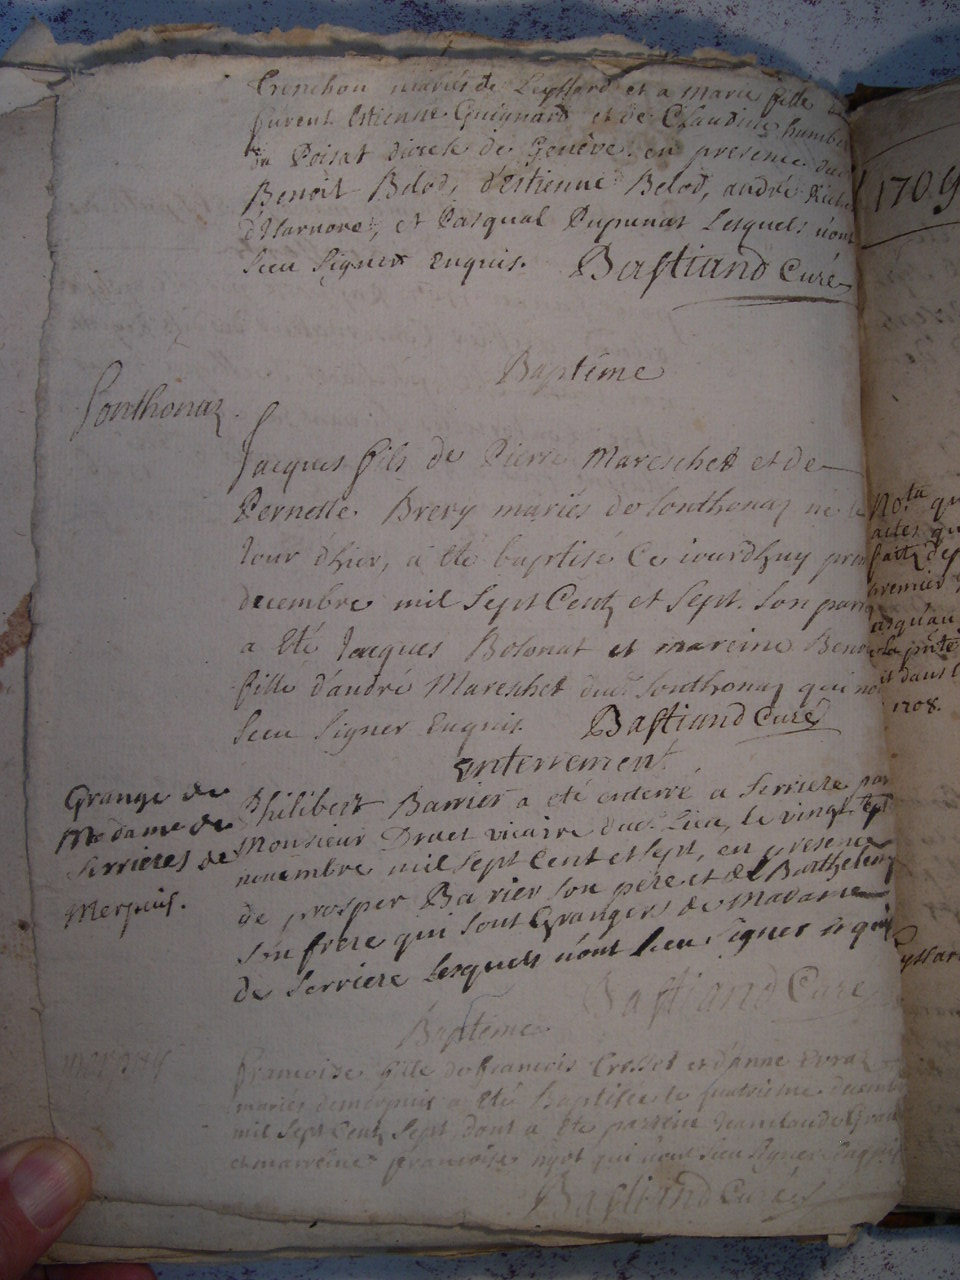 Trenchon mariés de Leyssard et a Marie fille de
furent Estienne Guignard et de Claudine humbe
du Poisat diocese de Genève. en presence du
Benoit Belod, d'Estienne Belod, andré
d'Isarnore, et Pasqual Pupunat Lesquels n'ont
sceu signer enquis. Bastiand Curé
Baptême
Sonthonaz
Jacques fils de Pierre Mareschet et de
Pernette Brevy mariés de Sonthonaz né le
Jour d'hier, a été baptisé ce iourdhuy prem
decembre mil sept Centz et sept. son parr
a été Jacques Bolonat et mareine Beno
fille d'andré Mareschet dud. Sonthonaz qui no
sceu signer enquis. Bastiand Curé
enterrement
Grange de
Madame de
Serrieres de
Merpuis.
Philibert Barrier a été enterré a Serriere par
Monsieur Druet vicaire dud. Lieu, le vingt sept
novembre mil sept Cent et sept, en presence
de prosper Barrier son père et de Barthelemy
son frere qui sont Grangers de Madame
de Serriere Lesquels n'ont sceu signer
Bastiand Curé
Baptême
Merpuis
francoise fille de francois Crosset et d'anne
mariés de merpuis a été Baptisée le quatrieme decemb
mil sept Centz sept dont a été parrein Jean claude
et marreine francoise nyot qui n'ont sceu signer enquis
Bastiand Curé
1709
No.ta qu
actes qu
faitz dep
premier
jusqu'au
la pnte
et dans l
1708.
Leyssard